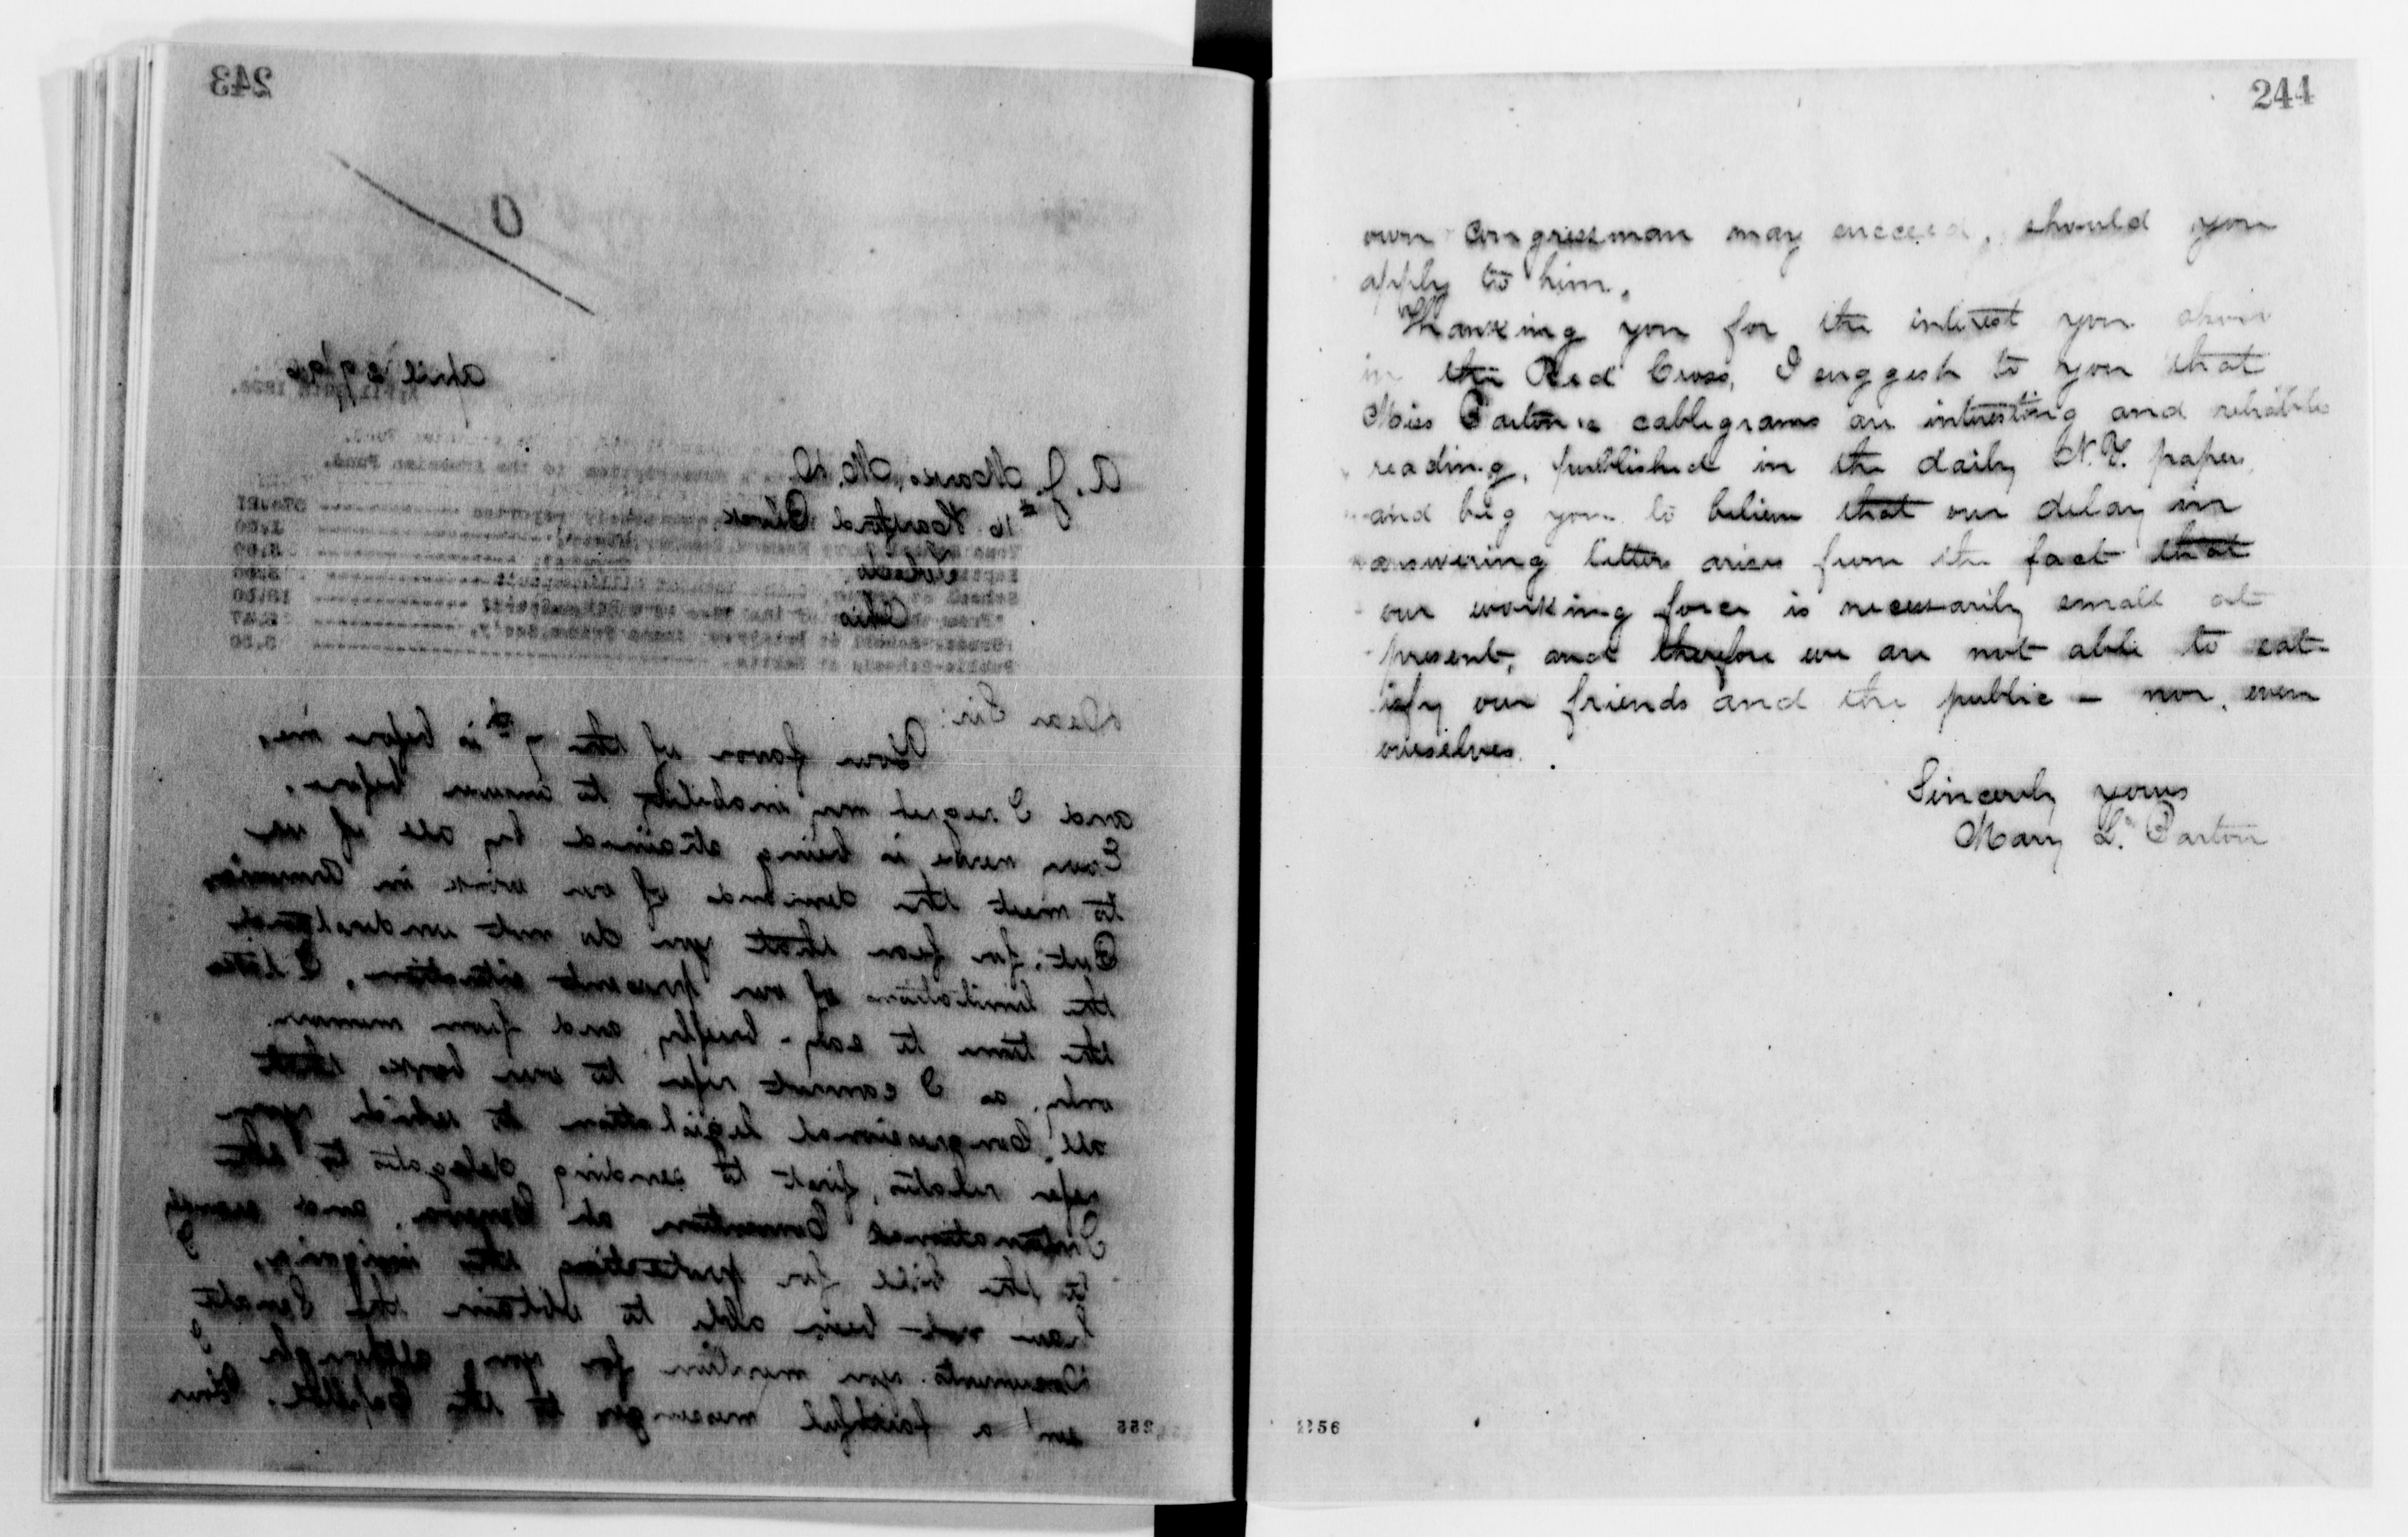 243
April 29/96
A. J. Marx, M.D.
16 Hartford Block
Toledo
Ohio
Dear Sir:
Your favor of the 7th is before me,
and I regret my inability to answer before.
Every nerve is being strained by all of us
to meet the demand of our work in Armenia
But, for fear that you do not understand
the limitations of our present situation, I take
the time to say - briefly and from memory
only, as I cannot refer to our books that
all Congressional legislation to which you
refer relates, first, to sending delegates to the
International Convention at Geneva, and secondly
to the bill for protecting the insignia, I
have not been able to obtain the Senate
Documents you mention for you, although I
sent a faithful messenger to the Capitol. Your
255
244
own congressman may succeed, should you
apply to him.
Thanking you for the interest you show
in the Red Cross, I suggest to you that
Miss Barton's cablegrams are interesting and reliable
reading, published in the daily N.Y. papers,
and beg you to believe that our delay in
answering letters arises from the fact that
our working force is necessarily small at
present, and therefore we are not able to sat-
isfy our friends and the public - nor, even
ourselves.
Sincerely yours
Mary L. Barton
256